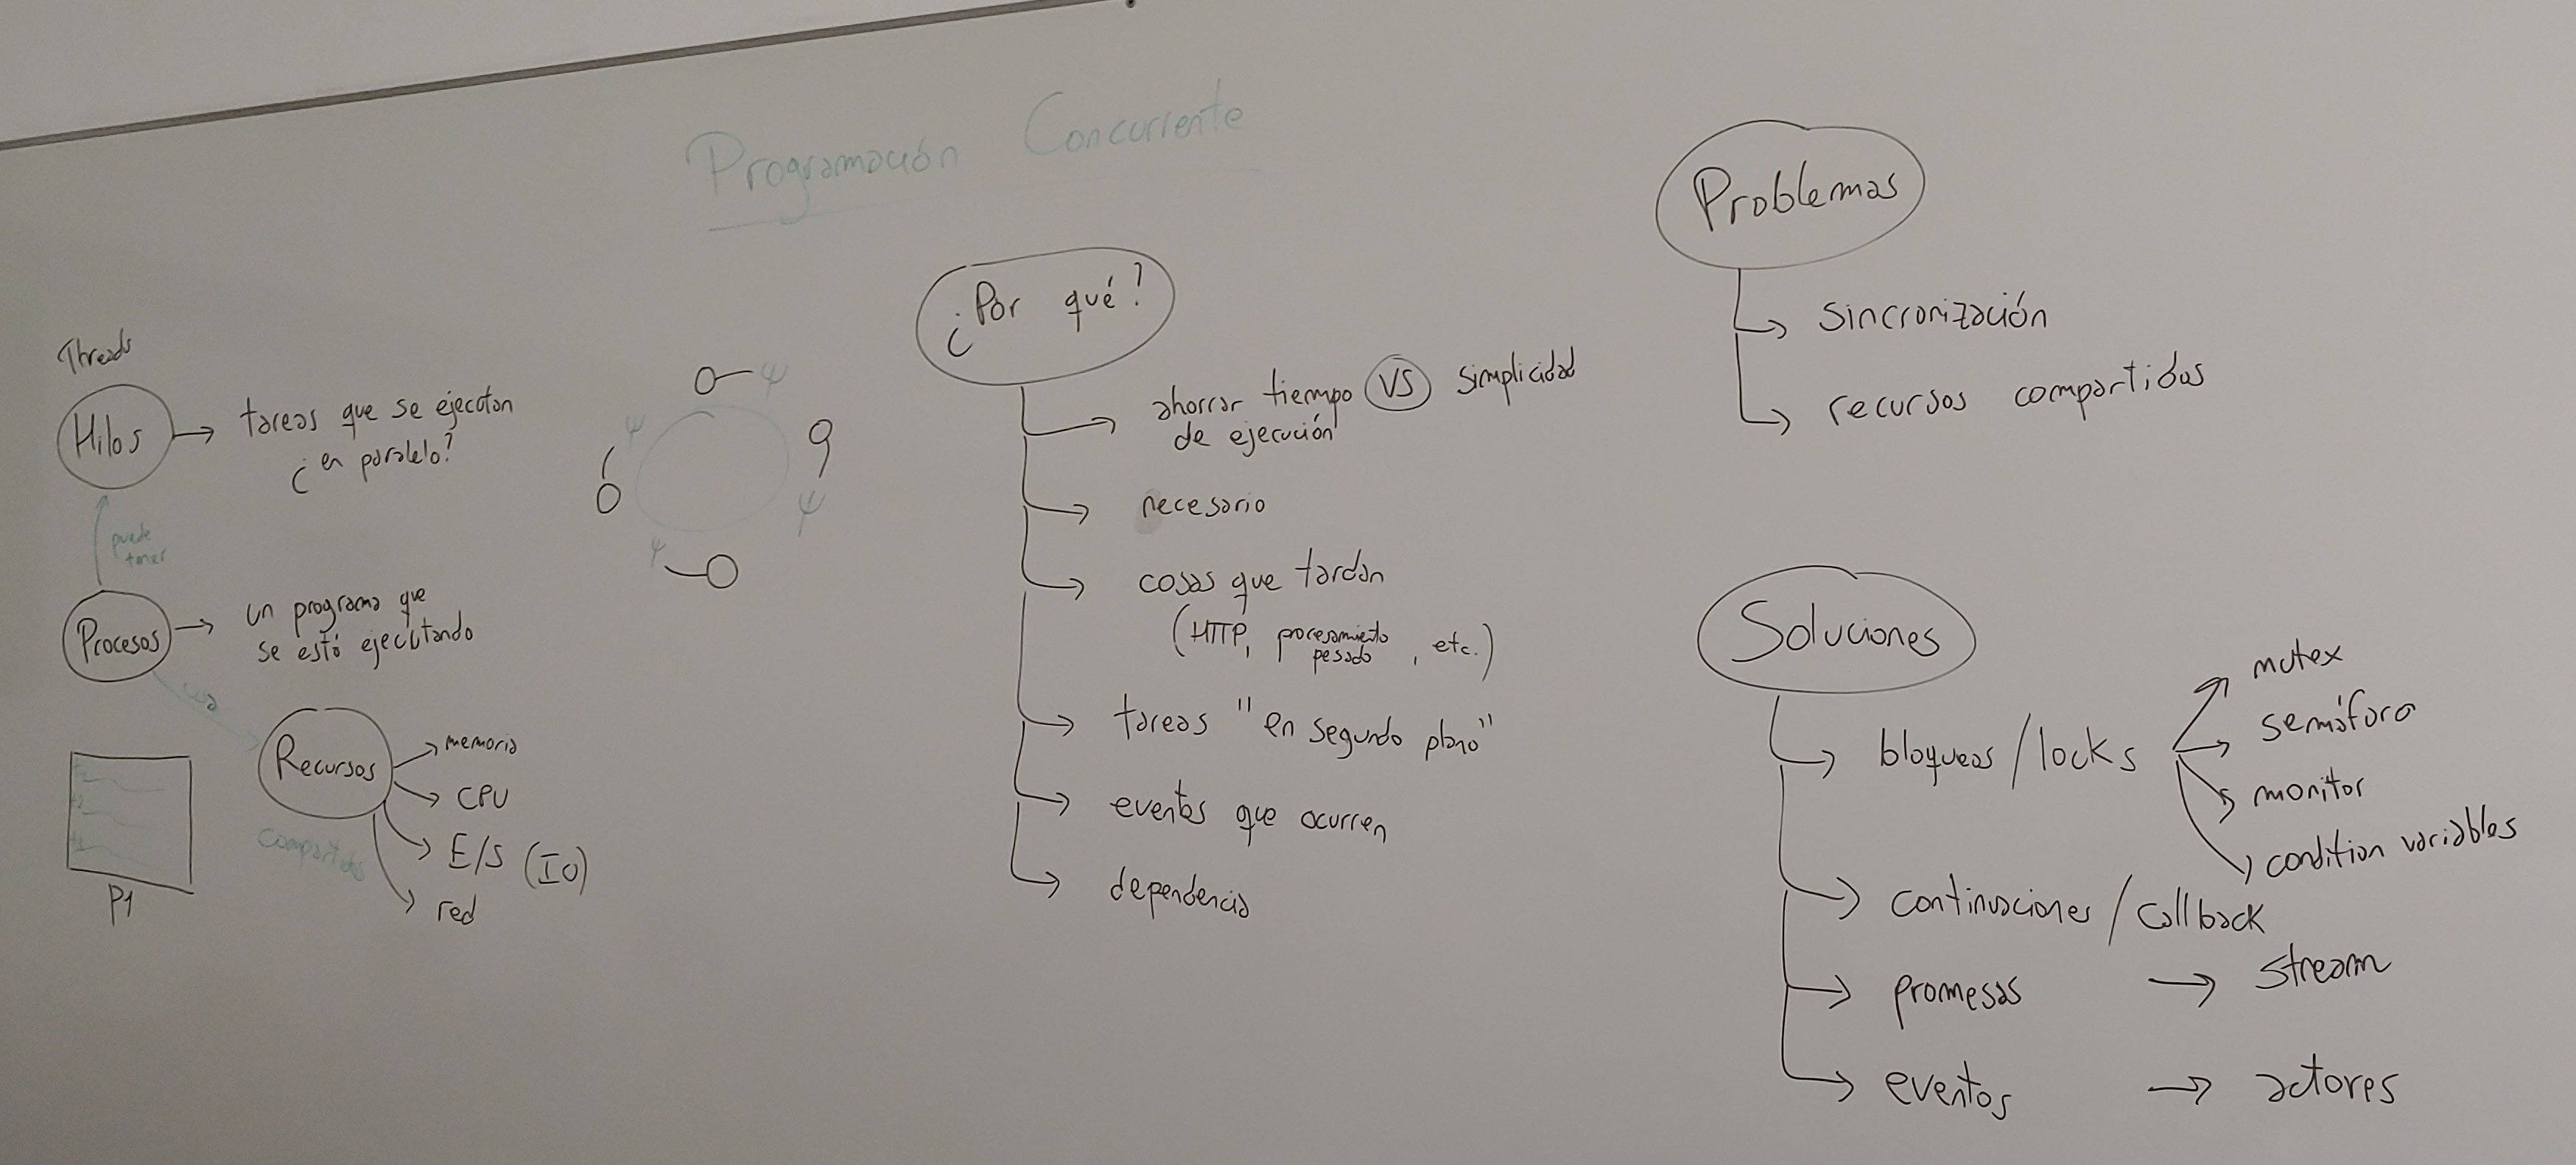 Programación Concurrente
Threads
Hilos
tareas que se ejecutan
¿en paralelo?
puede
tener
Procesos
un programa que
se está ejecutando
usa
Recursos
compartidos
memoria
CPU
E/S (IO)
red
P1
¿Por qué?
ahorrar tiempo VS simplicidad
de ejecución
necesario
cosas que tardan
(HTTP, procesamiento
pesado, etc.)
tareas "en segundo plano"
eventos que ocurren
dependencia
Problemas
sincronización
recursos compartidos
Soluciones
bloqueos/locks
mutex
semáforo
monitor
condition variables
continuaciones/callback
promesas → stream
eventos → actores